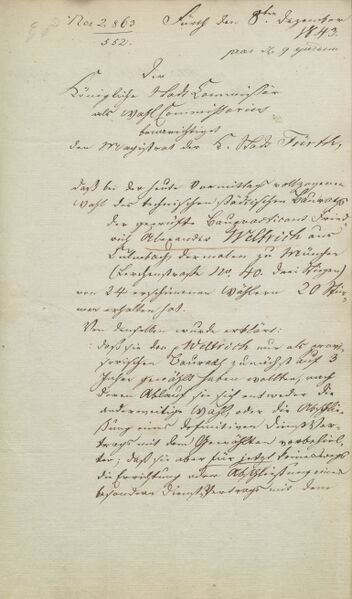 No 2863 Fürth den 8ten Dezember
552. 1843.
Der
Königliche Stadt Commissär
als Wahl Commissarius
benachrichtigt
den Magistrat der K. Stadt Fürth,
daß bei der heute Vormittags vollzogenen
Wahl des technischen städtischen Bauraths
der geprüfte Baupraktikant Fried
rich Alexander Weltrich aus
Culmbach dermalen zu München
(Lerchenstraße No. 40. drei Stiegen)
von 24 erschienenen Wählern 20 Stim
men erhalten hat.
Von denselben wurde erklärt:
daß sie den Weltrich nur als provi
sorischen Baurath zunächst auf 3
Jahre gewählt haben wollten, nach
deren Ablauf sie sich entweder die
anderweitige Wahl oder die Abschlie
ßung eines definitiven Dienstver
trags mit dem Gewählten vorbehiel
ten; daß sie aber für jetzt keineswegs
die Errichtung oder Abschließung eines
besondern Dienstvertrags mit dem